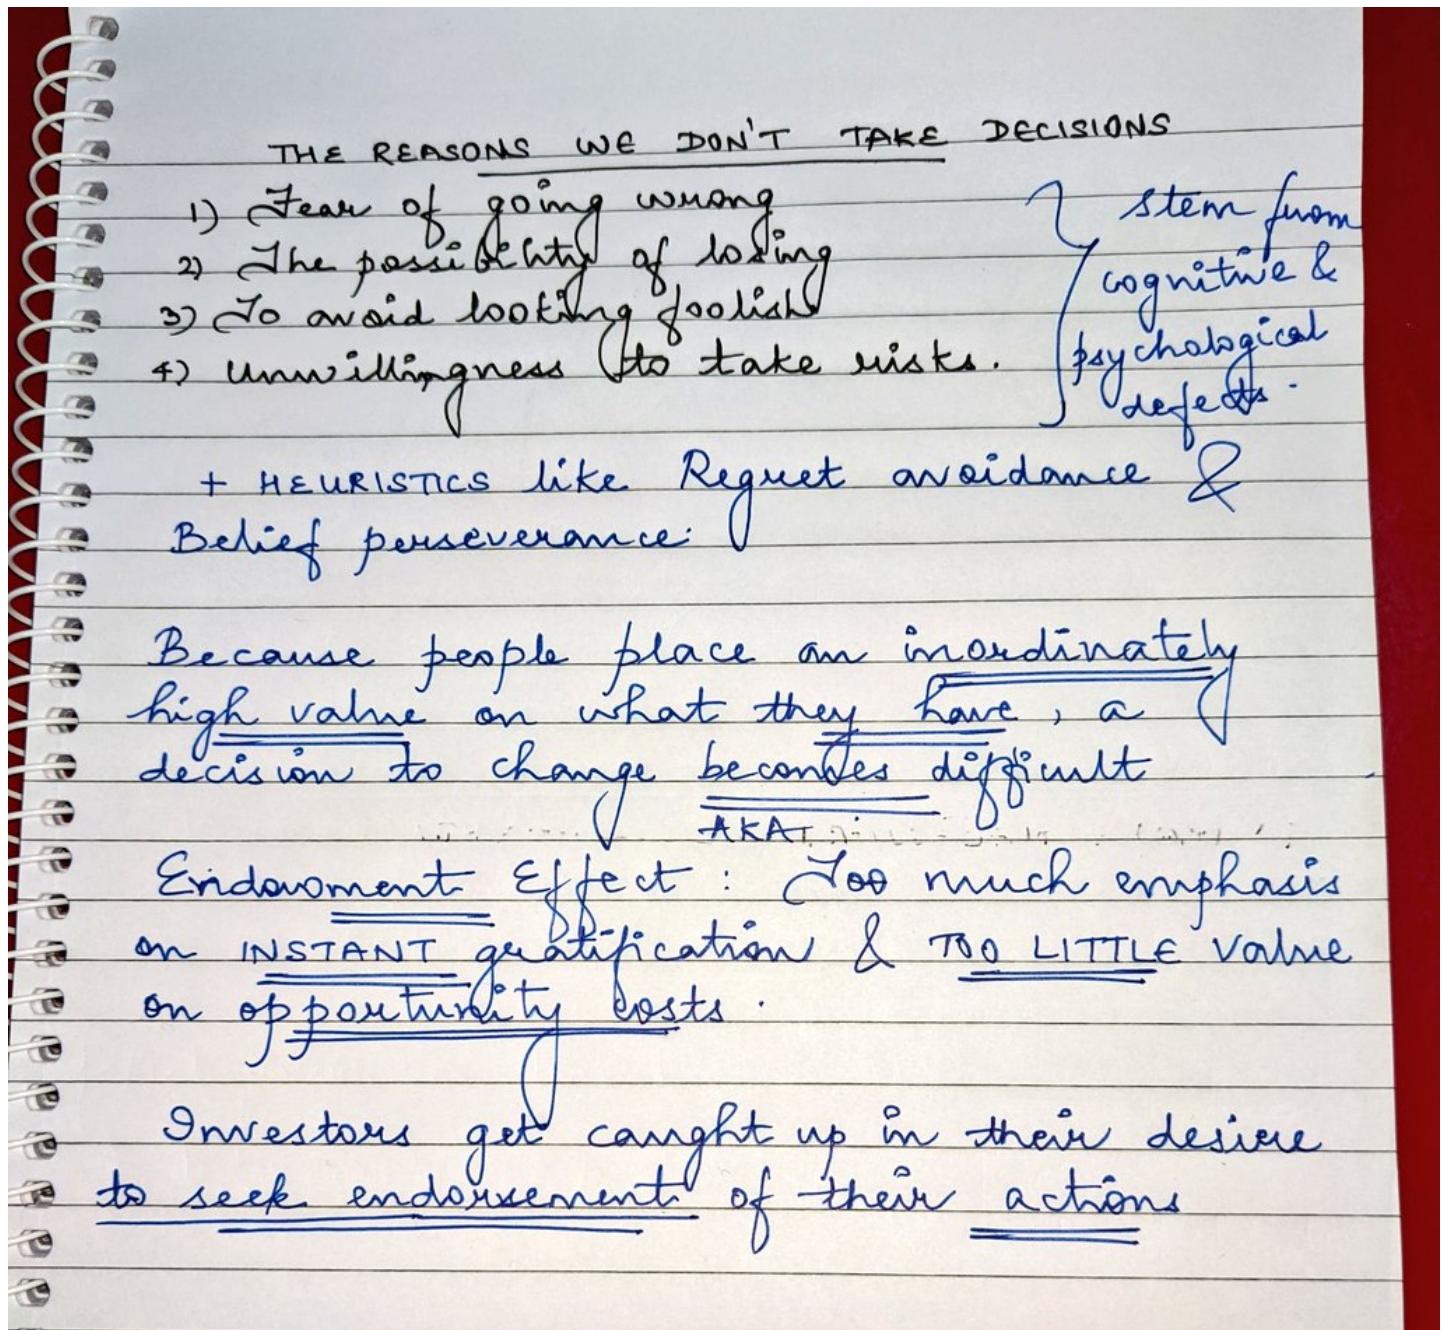 THE REASONS WE DON'T TAKE DECISIONS
1) Fear of going wrong
2) The possibility of losing
3) To avoid looking foolish
4) Unwillingness to take risks.
stem from
cognitive &
psychological
defects.
+ HEURISTICS like Regret avoidance &
Belief perseverance.
Because people place an inordinately
high value on what they have, a
decision to change becomes difficult
AKA
Endowment Effect : Too much emphasis
on INSTANT gratification & TOO LITTLE value
on opportunity costs.
Investors get caught up in their desire
to seek endorsement of their actions